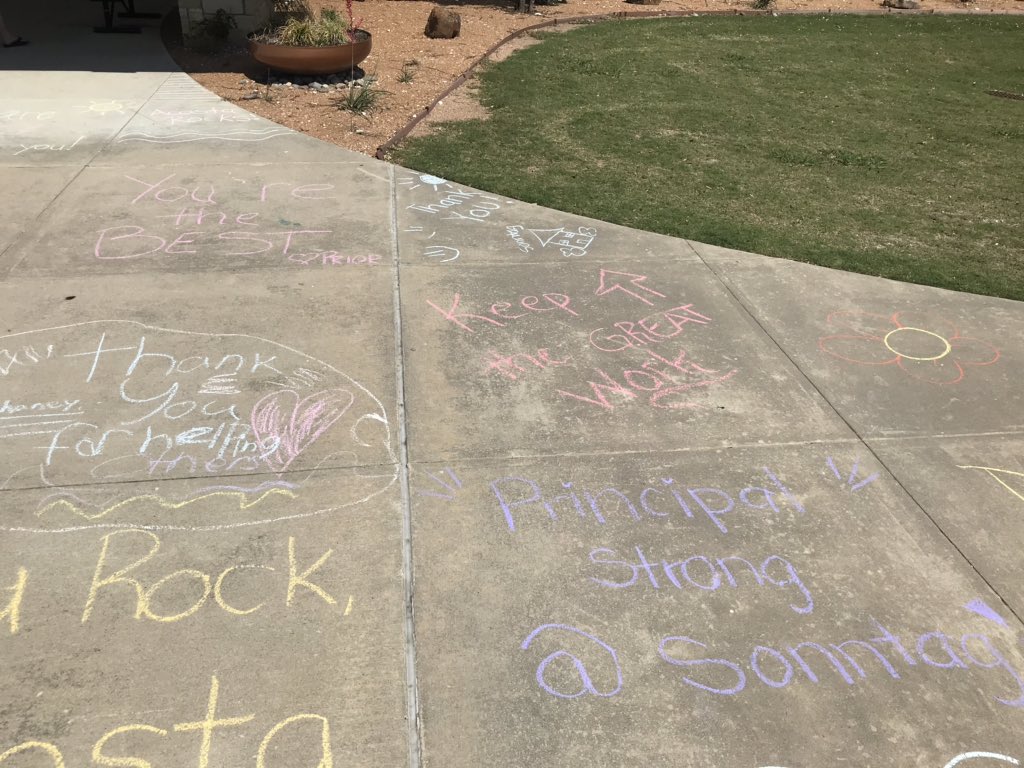 you!
You're
the
BEST
♡PRIOR
Thank
You!
Keep
the GREAT
Work
Thank
You
for helling
them
Rock,
Principal
Strong
@ Sonntag